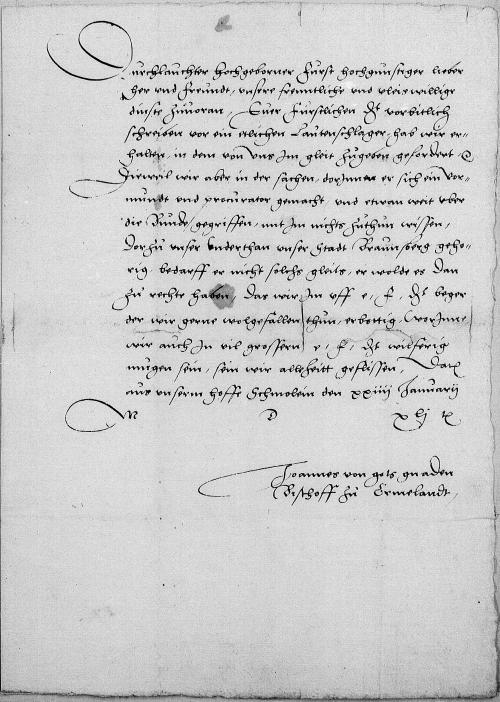 Durchlauchter Hochgeborner Furst hochgunstiger lieber
her vnd freundt, vnsere freuntliche vnd vleis willige
dinste zuuoran, Euer furstlichen Dt vorbitlich
schreiben vor ein etlichen Lautenschlager, hab wir er-
halten, in dem von vns Im gleit zugeben gefordert,
Dieweil wir aber in der sachen, dorinnen er sich ein vor-
mundt vnd procurator gemacht vnd etwan weit vber
die Bunde, gegriffen, mit Im nichts zuthun wissen,
dorzu vnser vnderthan vnser Stadt Braunsberg geho-
rig, bedarff er nicht solchs gleits, er wolde es dan
zu rechte haben, das wir Im vff e, f, Dt beger
der wir gerne wolgefallen thun, erbottig, Worinne
wir auch In vil grossern e, f, Dt wilferig
mugen sein, sein wir allezeitt geflissen, Dat
aus vnserm hoffe Schmolein den xxiiij Januarij
M D xlj
Joannes von gots gnaden
Bischoff zu Ermelandt,